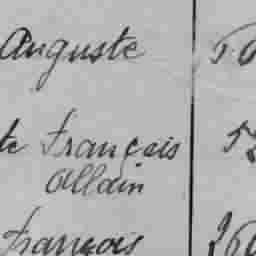 Auguste
te François
Allain
François